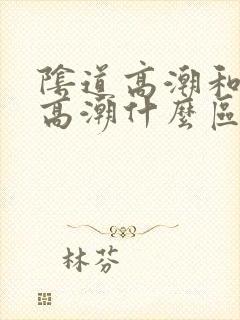 陰道高潮和
高潮什麼區
林芬